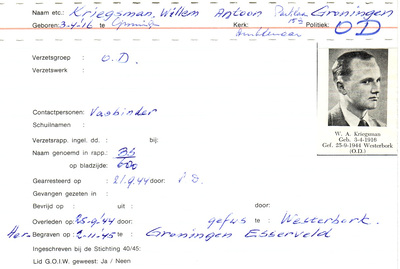 Naam etc.: Kriegsman, Willem Antoon Groningen
Geboren: 3-4-'16 te Groningen Kerk: Politiek: OD
Ambtenaar
Verzetsgroep : O.D.
Verzetswerk :
Contactpersonen: Vasbinder
Schuilnamen :
Verzetsrapp. ingel. dd. : bij:
Naam genoemd in rapp.: 34
op bladzijde: 600
Gearresteerd op : 21.9.44 door: S.D.
Gevangen gezeten in :
Bevrijd op : uit : door:
Overleden op: 25-9/44 door: gefus te : Westerbork.
Her Begraven op : 2-11-'45 te : Groningen Esserveld
Ingeschreven bij de Stichting 40/45:
Lid G.O.I.W. geweest: Ja / Neen
W. A. Kriegsman
Geb. 3-4-1916
Gef. 25-9-1944 Westerbork
(O.D.)